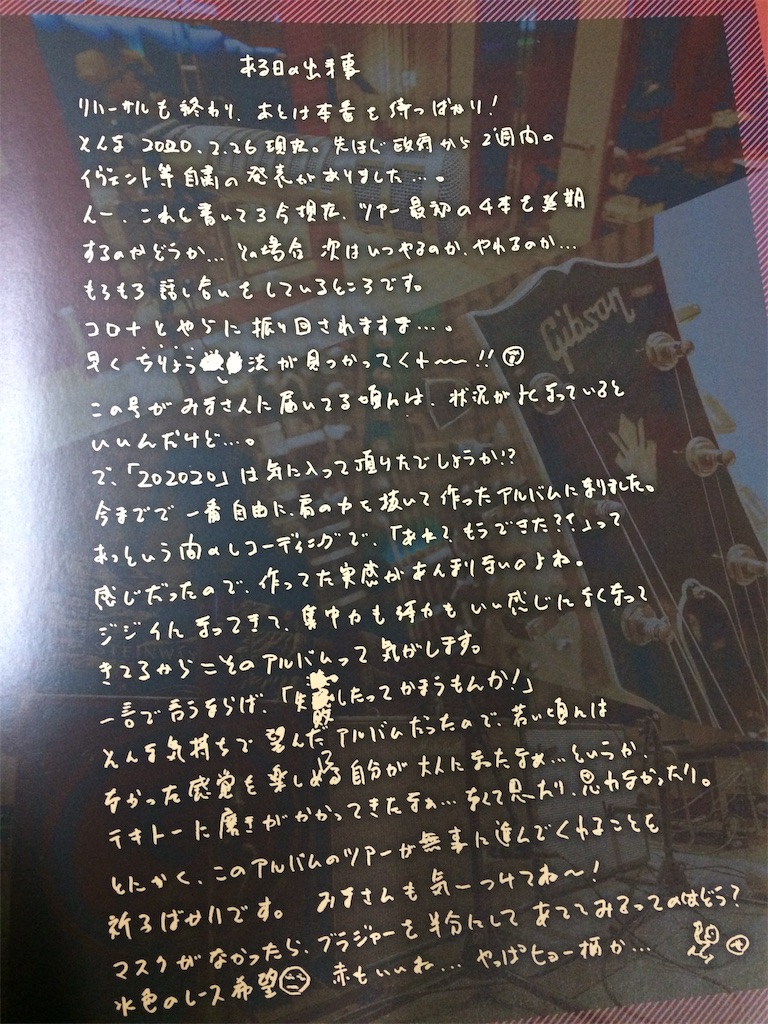 ある日の出来事
リハーサルも終わり、あとは本番を待つばかり!
そんな 2020.2.26現在。先ほど政府から2週間の
イヴェント等自粛の発表がありました…。
んー、これを書いてる今現在、ツアー最初の4本を延期
するのかどうか… その場合次はいつやるのか、やれるのか…
もろもろ話し合いをしているところです。
コロナとやらに振り回されますな…。
早くちりょう法が見つかってくれ〜〜!!
この号がみなさんに届いてる頃には、状況がよくなっていると
いいんだけど…。
で、「202020」は気に入って頂けたでしょうか!?
今までで一番自由に、肩の力を抜いて作ったアルバムになりました。
あっという間のレコーディングで、「あれ?もうできた??」って
感じだったので、作ってた実感があんまりないのよね。
ジジイになってきて、集中力も体力もいい感じになくなって
きてるからこそのアルバムって気がします。
一言で言うならば、「失敗したってかまうもんか!」
そんな気持ちで望んだアルバムだったので、若い頃には
なかった感覚を楽しめる自分が大人になったなぁ…というか、
テキトーに磨きがかかってきたなぁ…なんて思ったり、思わなかったり。
とにかく、このアルバムのツアーが無事に進んでくれることを
祈るばかりです。 みなさんも気ーつけてね〜!
マスクがなかったら、ブラジャーを半分にしてあててみるってのはどう?
水色のレース希望 赤もいいね… やっぱヒョー柄か…
Gibson